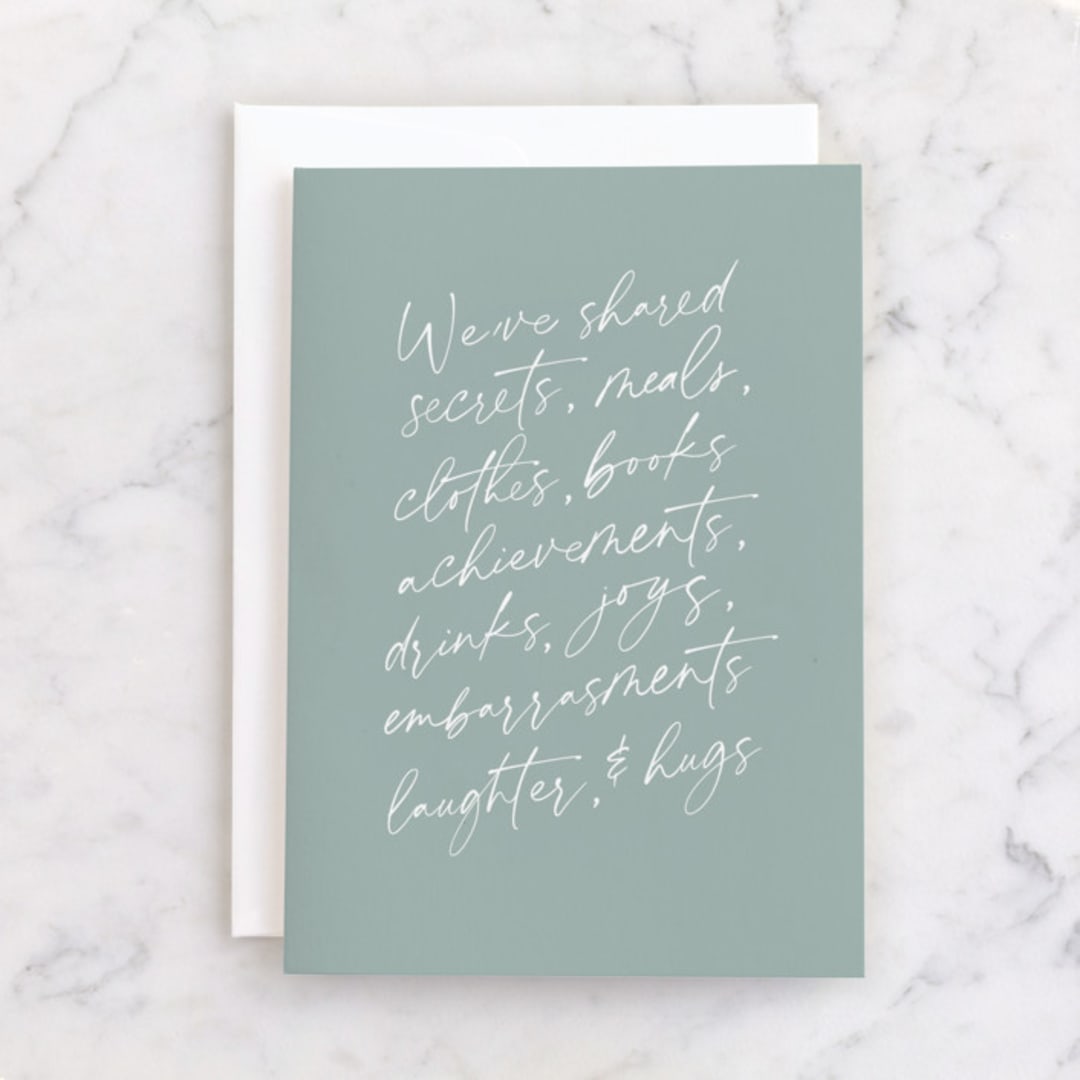 We've shared
secrets, meals,
clothes, books
achievements,
drinks, joys,
embarrasments
laughter, & hugs